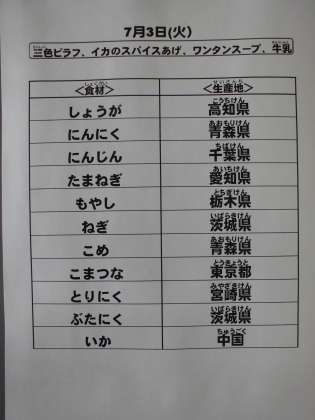 7月3日(火)
三色ピラフ、イカのスパイスあげ、ワンタンスープ、牛乳
<食材> <生産地>
しょうが 高知県
にんにく 青森県
にんじん 千葉県
たまねぎ 愛知県
もやし 栃木県
ねぎ 茨城県
こめ 青森県
こまつな 東京都
とりにく 宮崎県
ぶたにく 茨城県
いか 中国